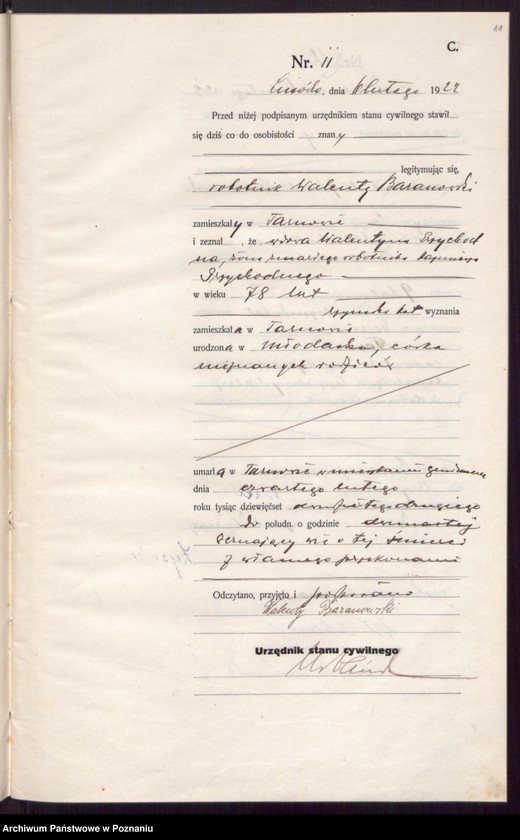 11
C.
Nr. 11
Lusówko, dnia 6 lutego 1922
Przed niżej podpisanym urzędnikiem stanu cywilnego stawił
się dziś co do osobistości znany
legitymując się,
robotnik Walenty Baranowski
zamieszkały w Tarnowie
i zeznał, że wdowa Walentyna Przychod
na, żona zmarłego robotnika Kazimierza
Przychodnego
w wieku 78 lat
rzymsko kat wyznania
zamieszkała w Tarnowie
urodzona w Młodasku, córka
nieznanych rodziców
umarła w Tarnowie w mieszkaniu
dnia czwartego lutego
roku tysiąc dziewięćset dwudziestego drugiego
do połudn. o godzinie dwunastej
Zeznający wie o tej śmierci
z własnego przekonania
Odczytano, przyjęto i podpisano
Walenty Baranowski
Urzędnik stanu cywilnego
Archiwum Państwowe w Poznaniu